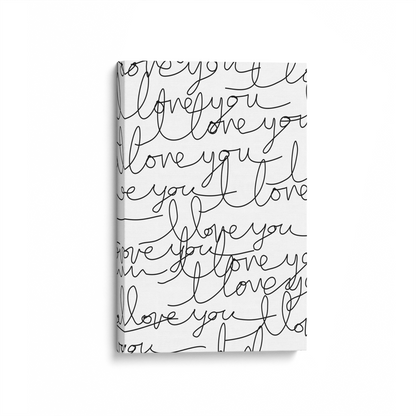 love you I l
I love you
I love you
I love you
ve you I love
I love you
love you
I love yo
I love yo
I love you
I lo